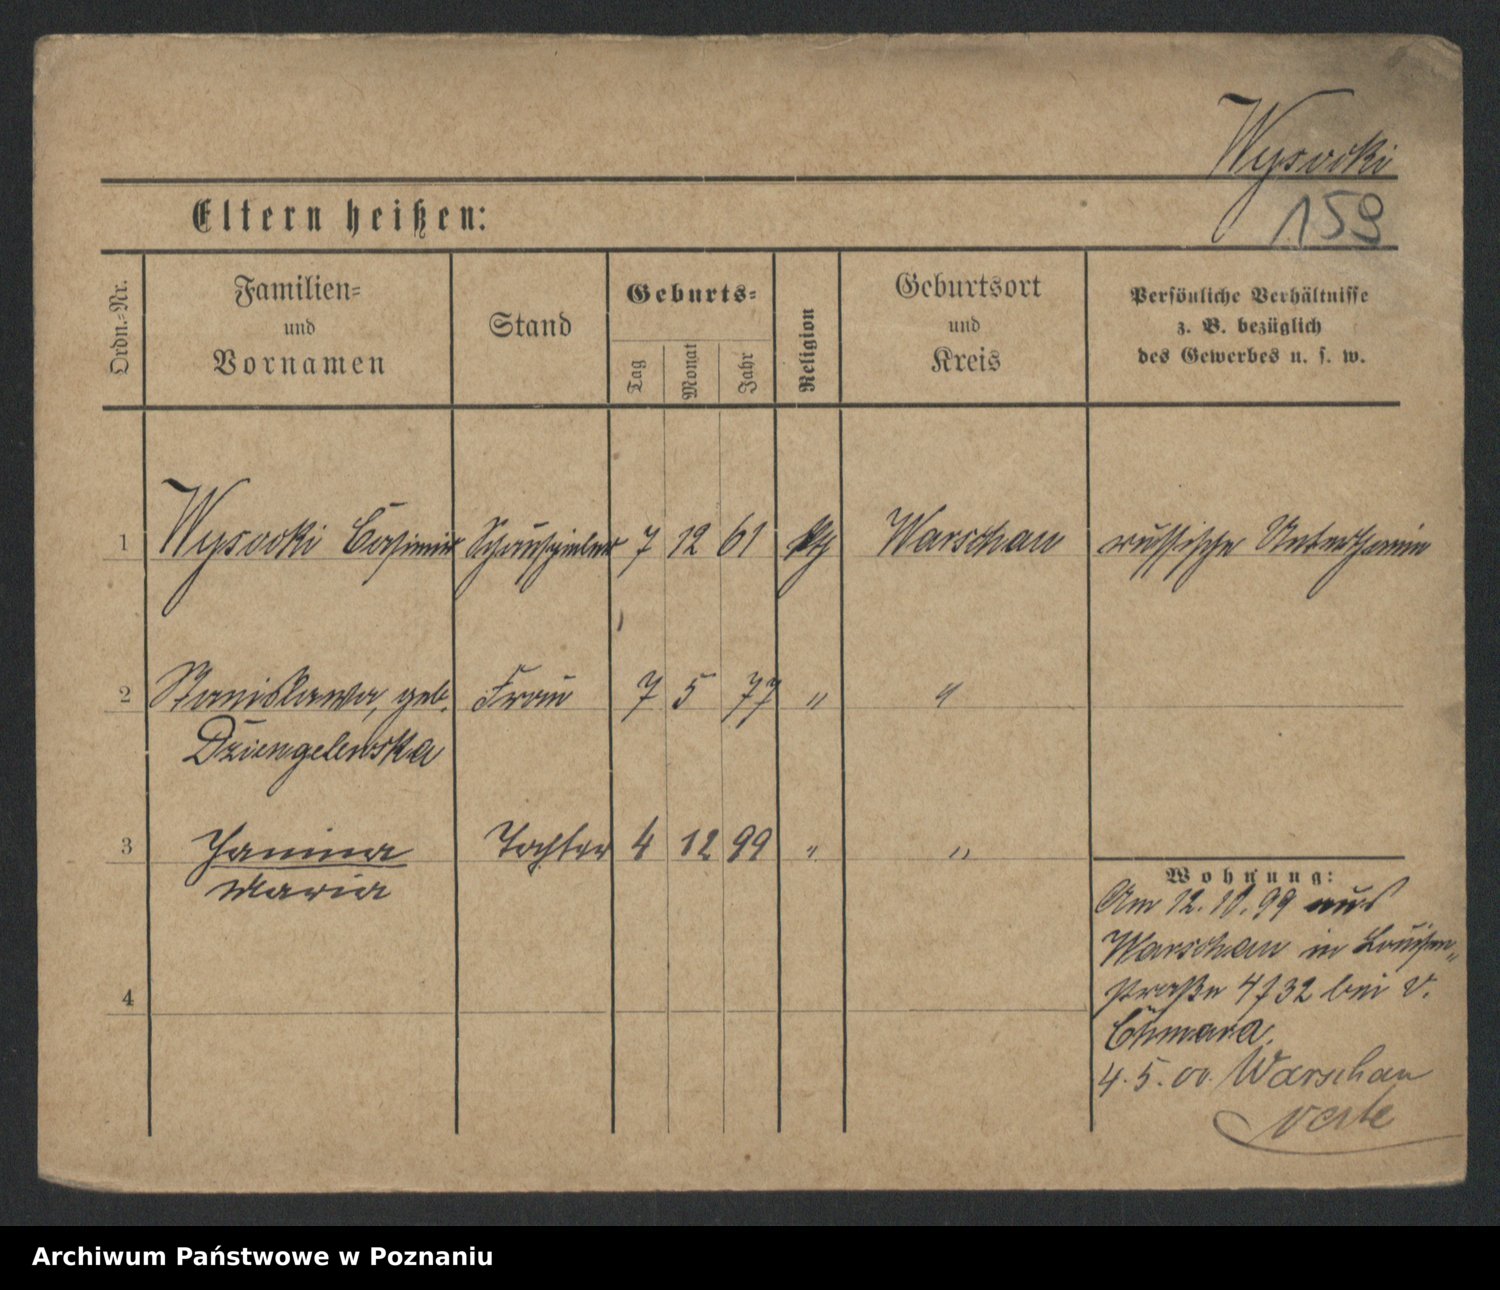 Wysocki
159
Eltern heißen:
Ordn.-Nr.
Familien-
und
Vornamen
Stand
Geburts-
Tag
Monat
Jahr
Religion
Geburtsort
und
Kreis
Persönliche Verhältnisse
z. B. bezüglich
des Gewerbes u. s. w.
1 Wysocki Casimir Schauspieler 7 12 61 kth Warschau russische Unterthanin
2 Stanislawa, geb. Frau 7 5 77 " "
Dziengelewska
3 Janina Tochter 4 12 99 " "
Maria
Wohnung:
Am 12. 10. 99 aus
Warschau in Louisen-
straße 4 732 bei v.
4
4. 5. 00. Warschau
verte
Archiwum Państwowe w Poznaniu